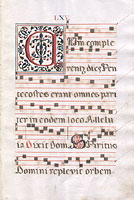 LXV
Cum comple
rentur dies Pen
tecostes erant omnes pari
ter in eodem loco Allelu
ia Dixit Dom Spiritus
Domini replevit orbem